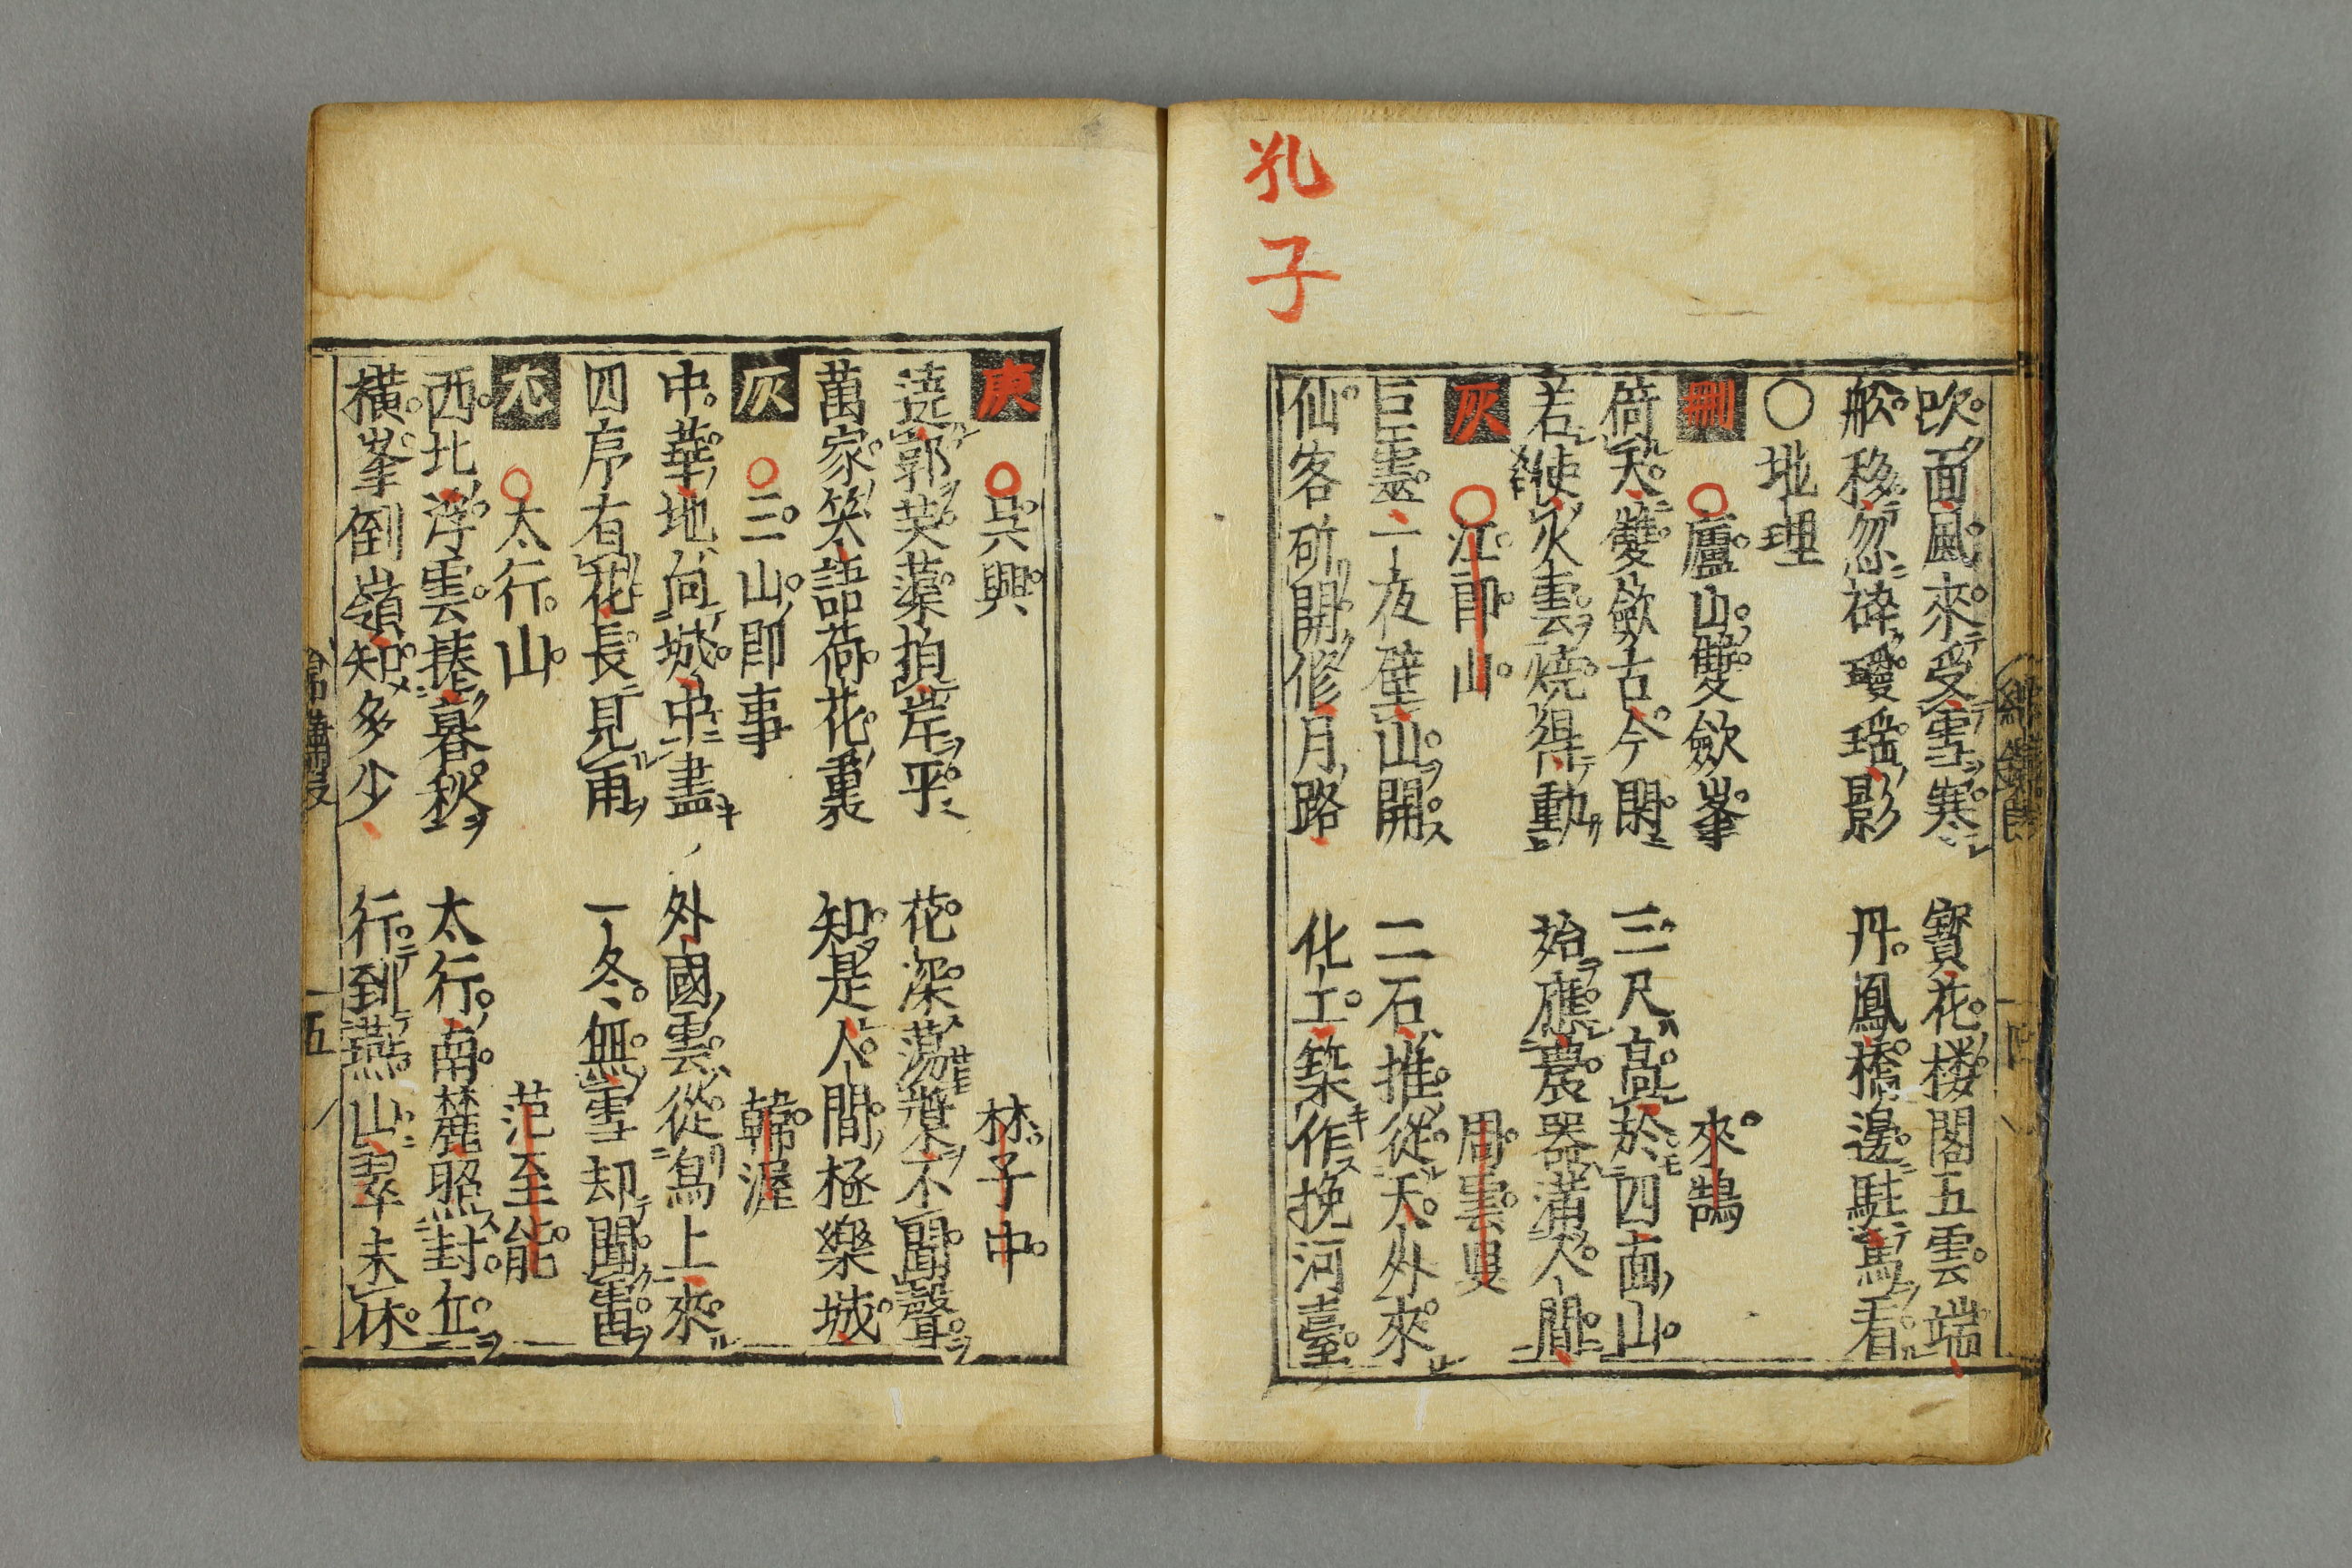 孔子
吹面風來受雪寒 寶花楼閣五雲端
舩移忽碎瑤影 丹鳳橋邊駐馬看
○地理
刪 ○廬山雙歛峯 來鵠
倚天雙歛古今閑 三尺高於四面山
若使火雲燒得動 始應農器滿人間
灰 ○江郎山 周雲叟
巨靈一夜壁山開 二石推從天外來
仙客斫開修月路 化工築作挽河臺
庚 ○吳興 林子中
遶郭芙蕖拍岸平 花深蕩槳不聞聲
萬家笑語荷花裏 知是人間極樂城
灰 ○三山即事 韓渥
中華地向城中盡 外國雲從島上來
四序有花長見雨 一冬無雪却聞雷
尤 ○太行山 范至能
西北浮雲捲暮秋 太行南麓照封丘
橫峯倒嶺知多少 行到燕山翠未休
五